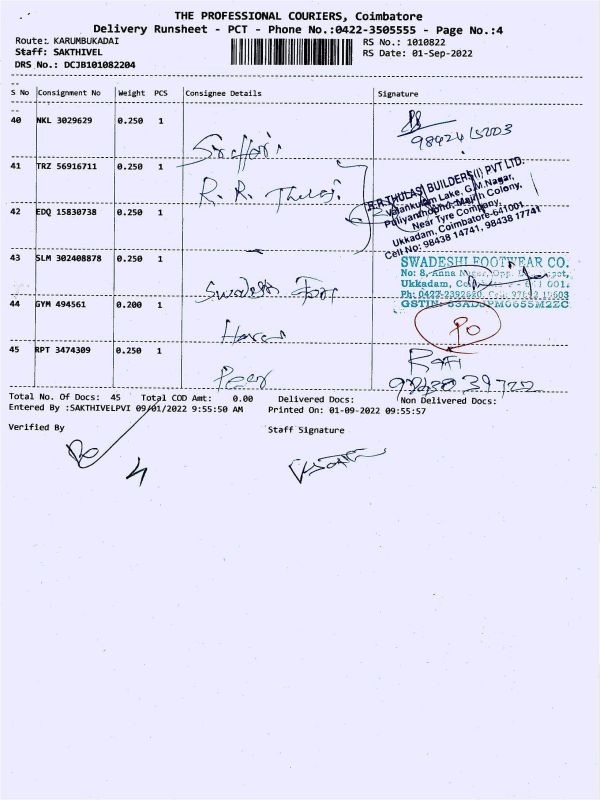 THE PROFESSIONAL COURIERS, Coimbatore
Delivery Runsheet - PCT - Phone No.:0422-3505555 - Page No.:4
Route: KARUMBUKADAI
RS No.: 1010822
Staff: SAKTHIVEL
RS Date: 01-Sep-2022
DRS No.: DCJB101082204
S No Consignment No Weight PCS Consignee Details Signature
40 NKL 3029629 0.250 1
41 TRZ 56916711 0.250 1
R. R. Thulasi
R.R.THULASI BUILDERS(I) PVT LTD.
Valankulam Lake, G.M.Nagar,
Pulliyanthoppu, Majith Colony,
Near Tyre Company,
Ukkadam, Coimbatore-641001
Cell No: 98438 14741, 98438 17741
42 EDQ 15830738 0.250 1
43 SLM 302408878 0.250 1
SWADESHI FOOTWEAR CO.
No: 8, Anna Nagar, Opp.
Ukkadam, 641 001.
Ph: 0422-
GSTIN: 33ADJPM0655M2ZC
44 GYM 494561 0.200 1
PO
45 RPT 3474309 0.250 1
Peer
Total No. Of Docs: 45 Total COD Amt: 0.00 Delivered Docs: Non Delivered Docs:
Entered By :SAKTHIVELPVI 09/01/2022 9:55:50 AM Printed On: 01-09-2022 09:55:57
Verified By Staff Signature